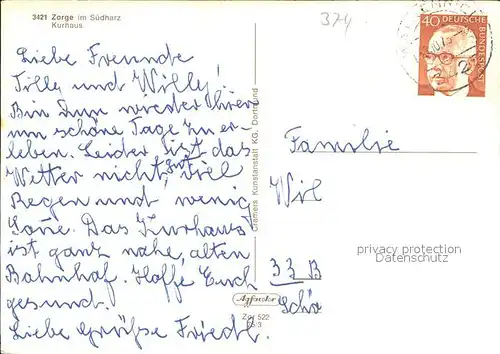 3421 Zorge im Südharz
Kurhaus
374
40 DEUTSCHE
BUNDESPOST
Liebe Freunde
Tilly und Willy!
Bin nun wieder hier
um schöne Tage zu er-
leben. Leider ist das
Wetter nicht gut, viel
Regen und wenig
Sonne. Das Kurhaus
ist ganz nahe, alten
Bahnhof. Hoffe Euch
gesund.
Liebe Grüße Friedl.
Cramers Kunstanstalt KG, Dortmund
Agfacolor
Zo 522
Familie
Wil
33 B
privacy protection
Datenschutz